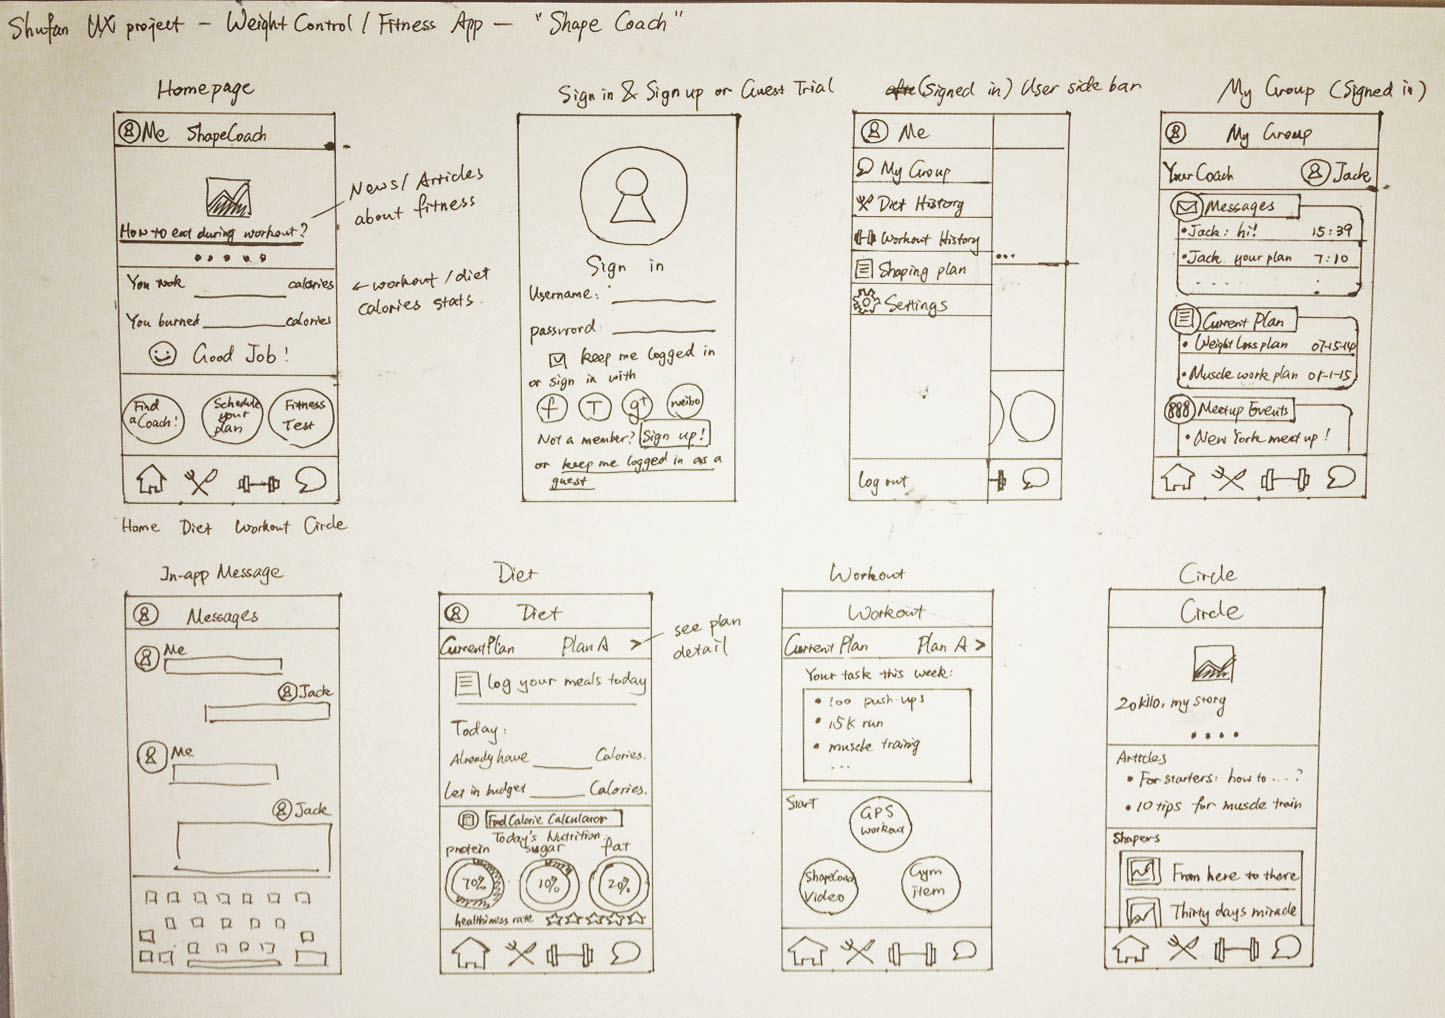 Shufan UX project - Weight Control / Fitness App - "Shape Coach"
Homepage
Me ShapeCoach
How to eat during workout?
You took ______ calories
You burned ______ calories
Good Job!
Find a Coach!
Schedule your plan
Fitness Test
Home Diet Workout Circle
News/Articles
about fitness
← workout / diet
calories stats.
Sign in & Sign up or Guest Trial
Sign in
Username:
password:
keep me logged in
or sign in with
f T g+ weibo
Not a member? Sign up!
or keep me logged in as a
guest
(signed in) User side bar
Me
My Group
Diet History
Workout History
Shaping plan
Settings
log out
My Group (Signed in)
My Group
Your Coach Jack
Messages
• Jack: hi! 15:39
• Jack your plan 7:10
Current Plan
• Weight loss plan 07-15-14
• Muscle work plan 01-1-15
Meetup Events
• New York meet up!
In-app Message
Messages
Me
Jack
Me
Jack
Diet
Diet
Current Plan Plan A >
log your meals today
Today:
Already have ______ Calories.
in budget ______ Calories.
Food Calorie Calculator
Today's Nutrition
protein sugar fat
70% 10% 20%
healthiness rate
see plan
detail
Workout
Workout
Current Plan Plan A >
Your task this week:
• 100 push-ups
• 15k run
• muscle traing
...
Start
GPS workout
ShapeCoach Video
Gym item
Circle
Circle
20kilo, my story
Articles
• For starters: how to ....?
• 10 tips for muscle train
Shapers
From here to there
Thirty days miracle